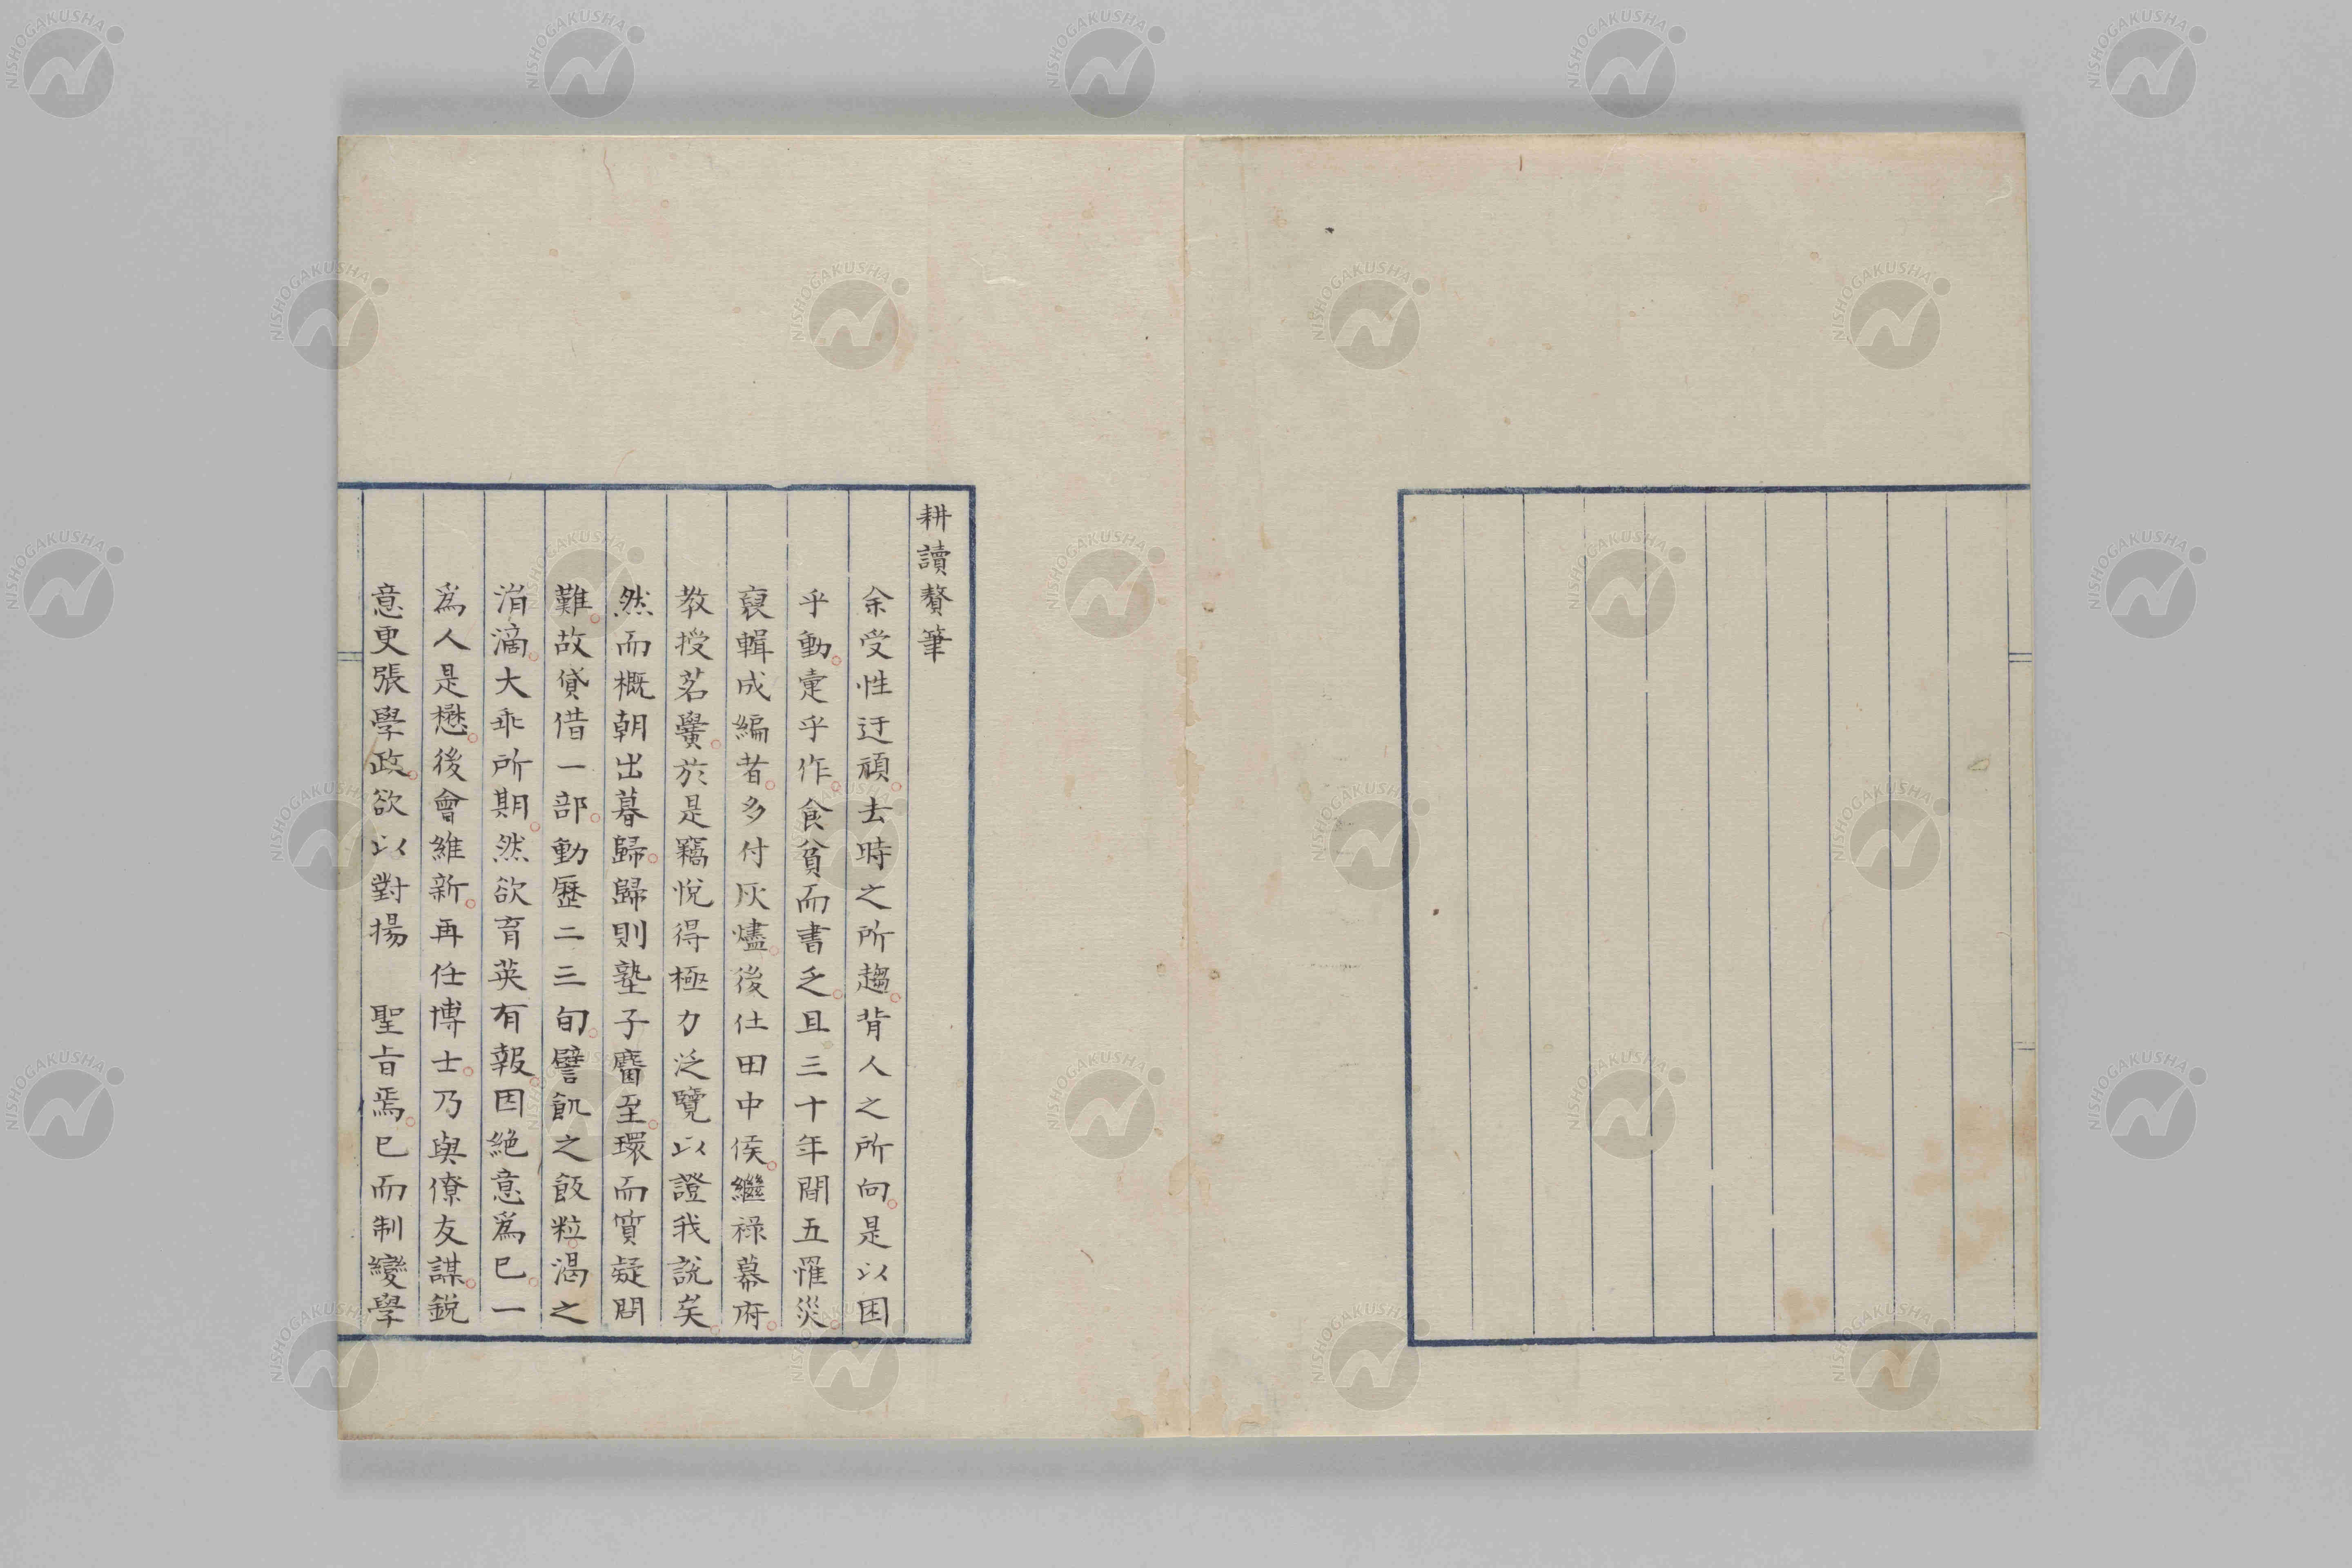 耕讀贅筆
余受性迂頑。去時之所趨。背人之所向。是以困
乎動。寁乎作。食貧而書乏。且三十年間五罹災。
裒輯成編者。多付灰燼。後仕田中侯。繼祿幕府。
教授茗黌。於是竊悅得極力泛覽以證我說矣。
然而概朝出暮歸。歸則塾子麕至。環而質疑問
難。故貸借一部。動歷二三旬。譬飢之飯粒。渴之
涓滴。大乖所期。然欲育英有報。因絕意爲己。一
爲人是懋。後會維新。再任博士。乃與僚友謀。銳
意更張學政。欲以對揚　聖旨焉。已而制變學